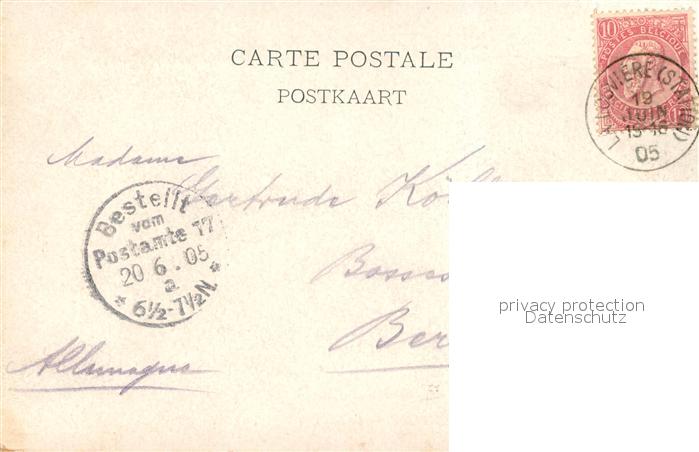 CARTE POSTALE
POSTKAART
10
POSTES BELGIQUE
19
JUIN
15-16
05
Madame
Gertrude
Bestellt
vom
Postamte 17
20 6. 05
a
* 6½-7½N. *
Ber
Allemagne
privacy protection
Datenschutz